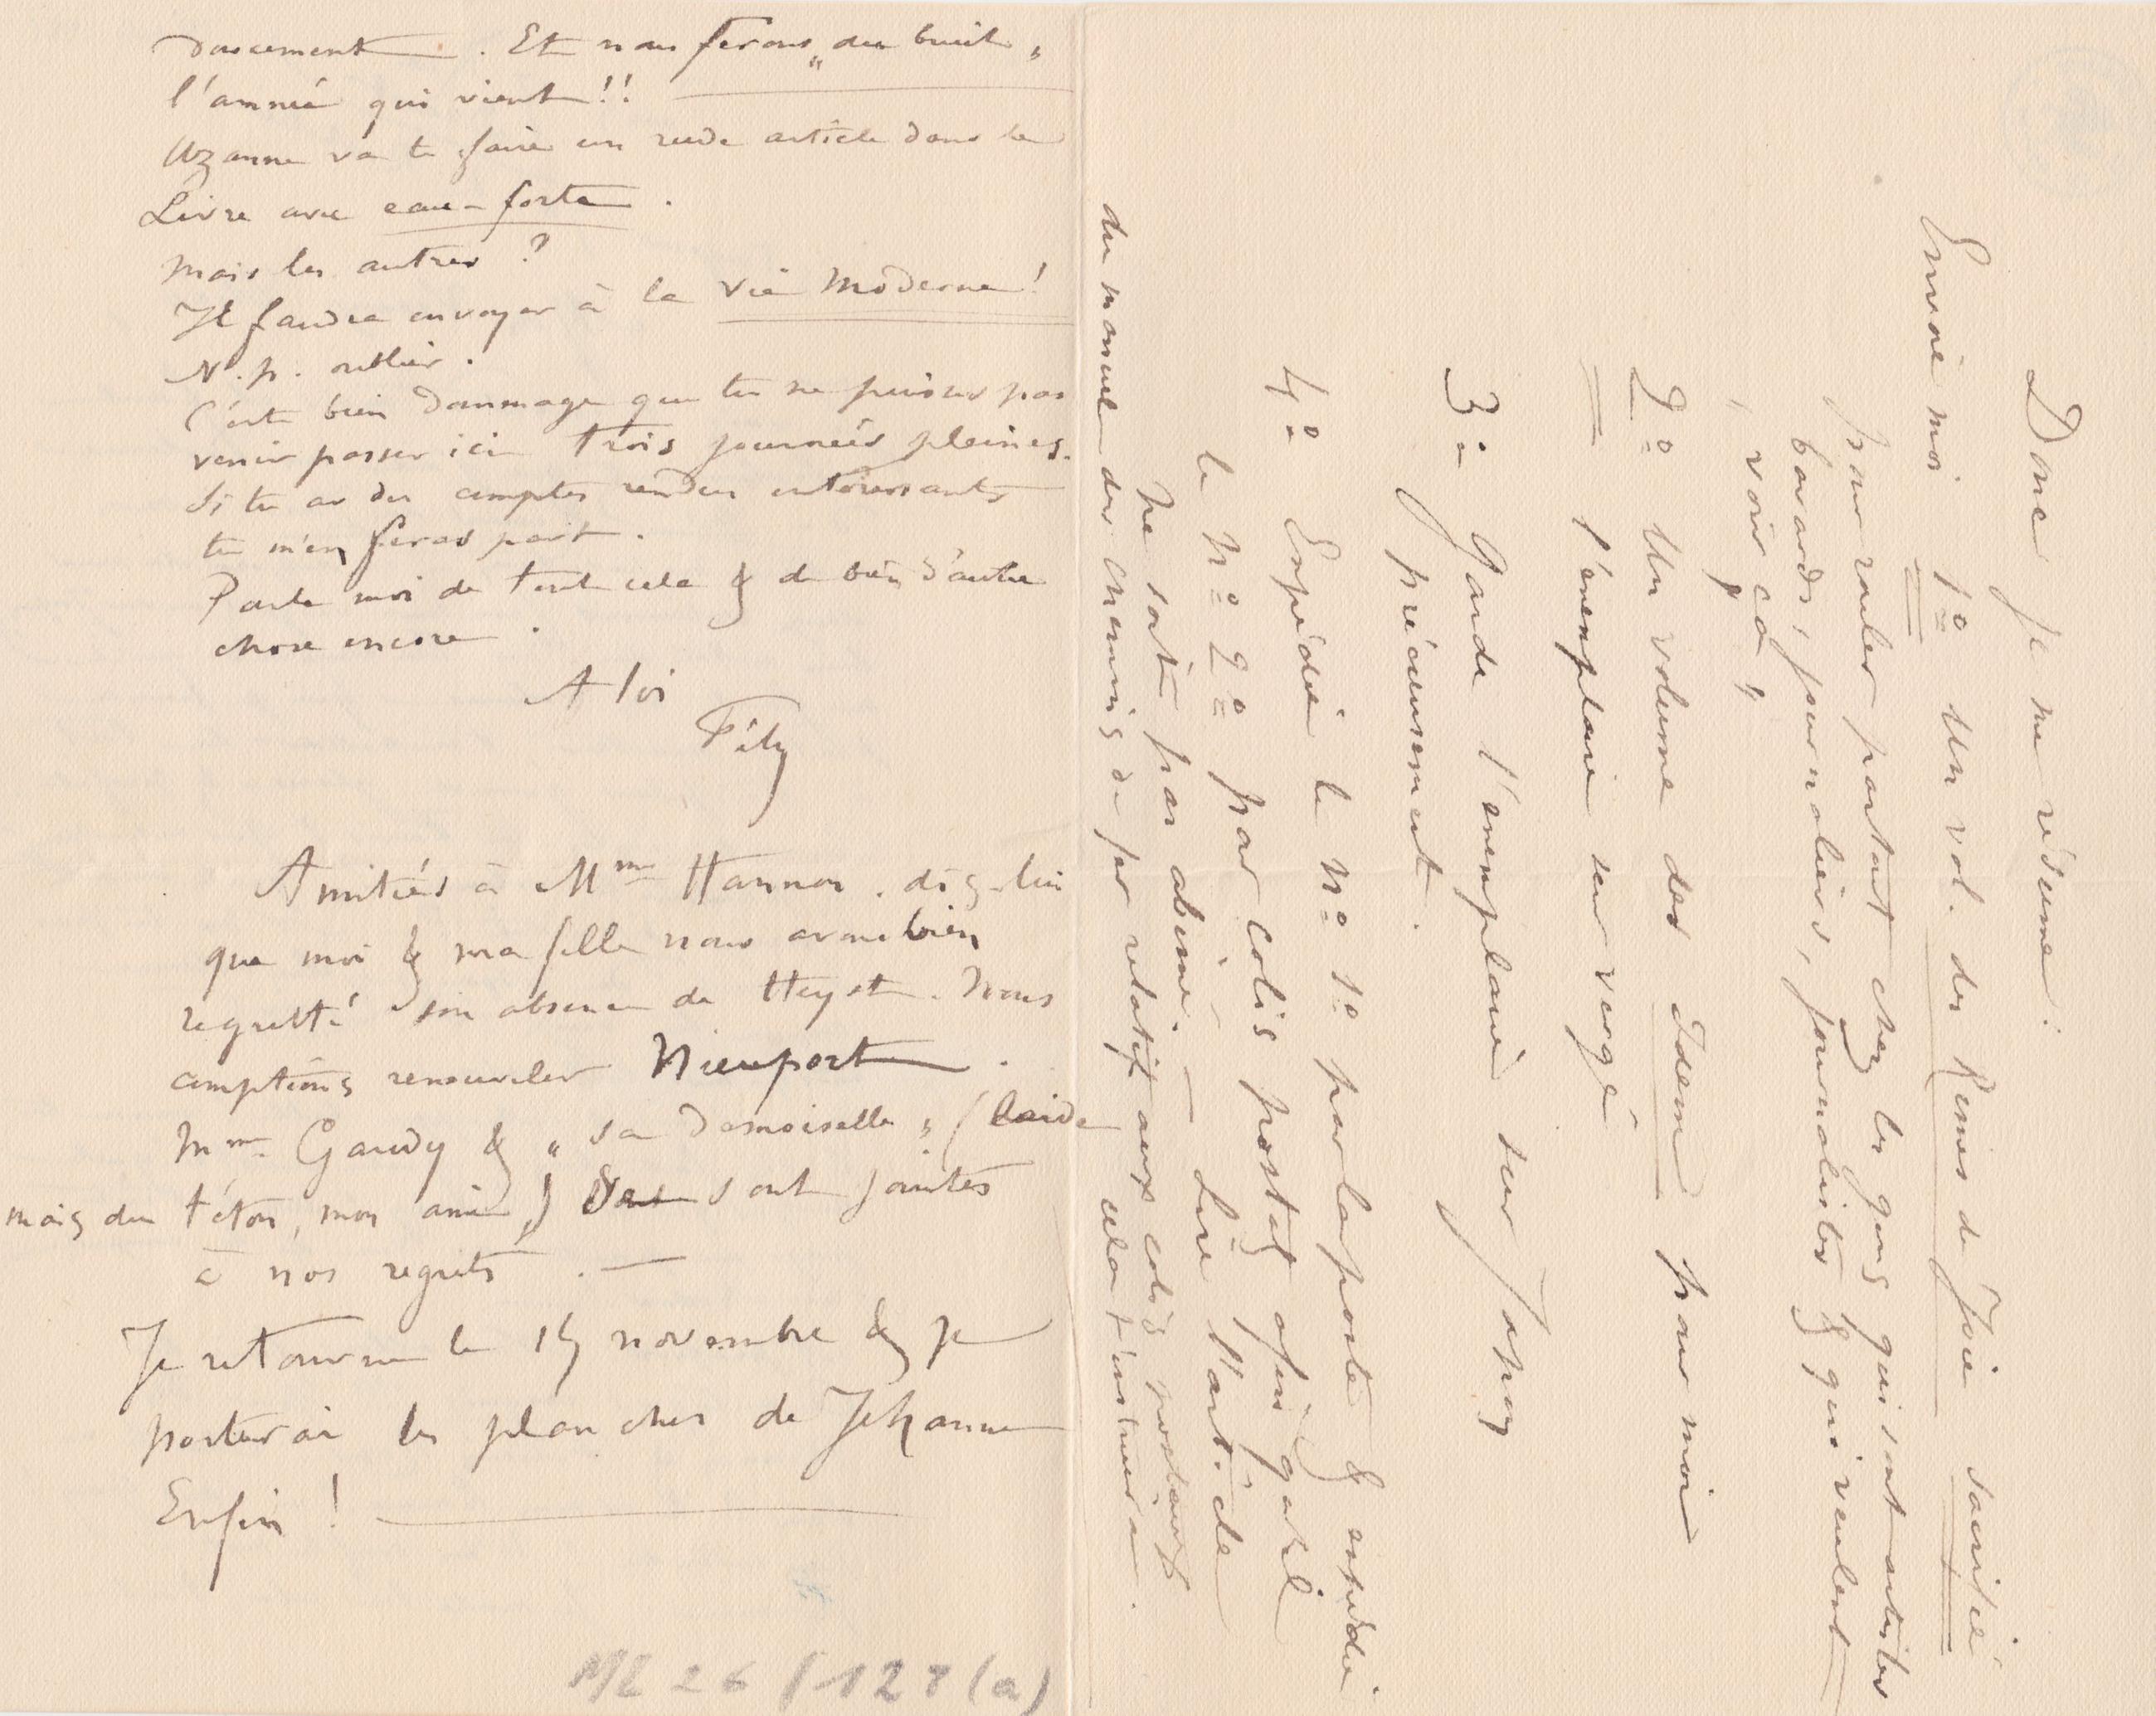 doucement . Et nous ferons „ du bruit „
l'année qui vient!!
Uzanne va te faire un rude article dans le
Livre avec eau-forte .
Mais les autres ?
Il faudra envoyer à la Vie Moderne !
N. p. oublier .
C'est bien dommage que tu ne puisses pas
venir passer ici trois journées pleines.
Si tu as des comptes rendus intéressants
tu m'en feras part .
Parle moi de tout cela & de bien d'autre
chose encore .
A toi
Fély
Amitiés à Mme Hannon . dis-lui
que moi & ma fille nous avons bien
regretté son absence de Heyst . Nous
comptions renouveler Nieuport .
Mme Gaudy & „ sa demoiselle „ (laide
mais du téton, mon ami ) sont jointes
à nos regrets . —
Je retourne le 15 novembre & je
porterai les planches de Jehanne
Enfin !
M/L 26 / 128 (a)
Donc je me résume :
Envoie moi 1o Un vol. des Rimes de Joie satiné
pour rouler partout chez les gens qui sont artistes
bavards, journaliers, journalistes & qui veulent
„ voir ça „
2o Un volume des Idem pour moi
l'exemplaire sur vergé
3o Garde l'exemplaire sur Japon
précieusement .
4o Expédie le no 1o par la poste & expédie
le no 2o par colis postal afin qu'il
ne soit pas abimé . — Lire l'article
du manuel des chemins de fer relatif aux colis postaux cela t'instruira .